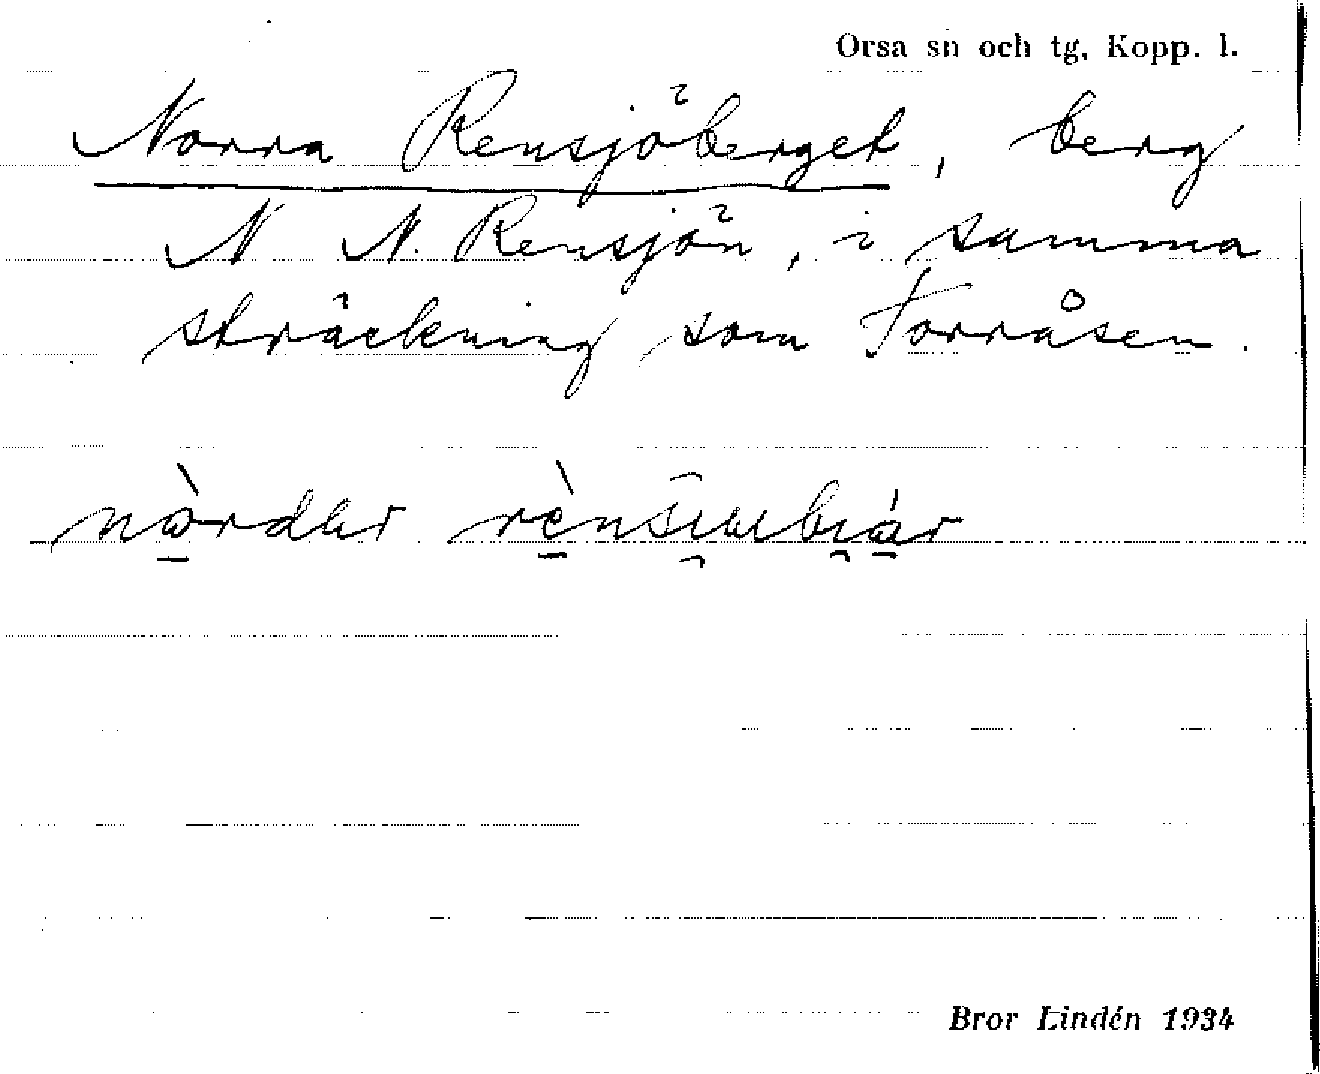 Orsa sn och tg, Kopp. l.
Norra Rensjöberget, berg
N N. Rensjön, i samma
sträckning som Torråsen.
Bror Lindén 1934